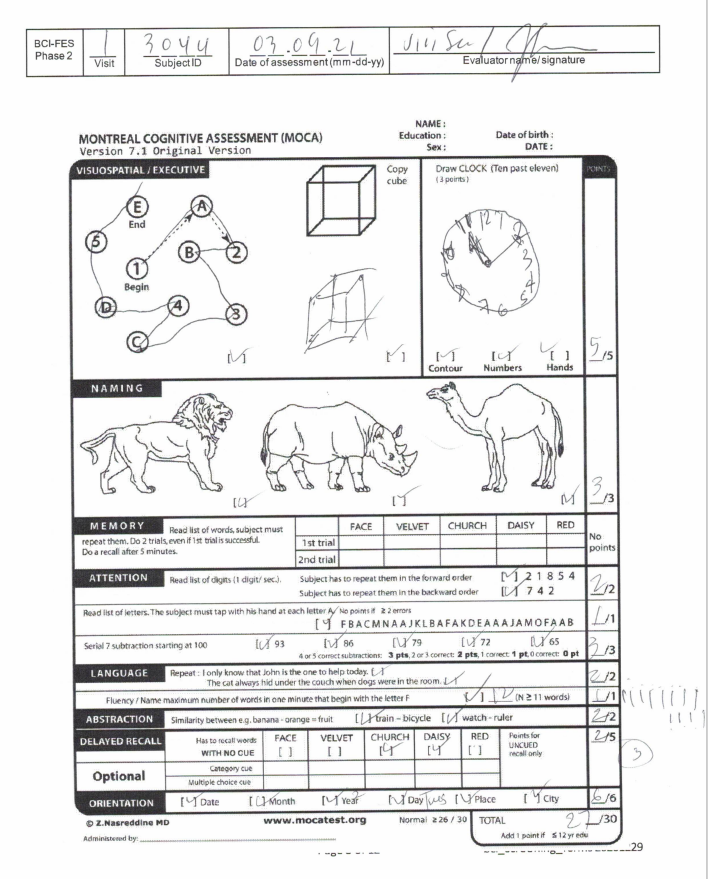 BCI-FES Phase 2
1 Visit
3044 Subject ID
03.09.21 Date of assessment (mm-dd-yy)
Evaluator name/signature
NAME :
Education : Date of birth :
Sex : DATE :
MONTREAL COGNITIVE ASSESSMENT (MOCA)
Version 7.1 Original Version
VISUOSPATIAL / EXECUTIVE
Copy cube
Draw CLOCK (Ten past eleven)
(3 points)
POINTS
E End
A
5
B 2
1 Begin
D 4 3
C
[✓] [✓] [✓] Contour [✓] Numbers ✓ [ ] Hands 5/5
NAMING
[✓] [✓] [✓] 3/3
MEMORY
Read list of words, subject must repeat them. Do 2 trials, even if 1st trial is successful. Do a recall after 5 minutes.
FACE VELVET CHURCH DAISY RED
1st trial
2nd trial
No points
ATTENTION
Read list of digits (1 digit/ sec.).
Subject has to repeat them in the forward order [✓] 2 1 8 5 4
Subject has to repeat them in the backward order [✓] 7 4 2 2/2
Read list of letters. The subject must tap with his hand at each letter A. No points if ≥ 2 errors
[✓] F B A C M N A A J K L B A F A K D E A A A J A M O F A A B 1/1
Serial 7 subtraction starting at 100 [✓] 93 [✓] 86 [✓] 79 [✓] 72 [✓] 65
4 or 5 correct subtractions: 3 pts, 2 or 3 correct: 2 pts, 1 correct: 1 pt, 0 correct: 0 pt 3/3
LANGUAGE
Repeat : I only know that John is the one to help today. [✓]
The cat always hid under the couch when dogs were in the room. [✓] 2/2
Fluency / Name maximum number of words in one minute that begin with the letter F [✓] (N ≥ 11 words) 1/1
ABSTRACTION
Similarity between e.g. banana - orange = fruit [✓] train – bicycle [✓] watch - ruler 2/2
DELAYED RECALL
Has to recall words WITH NO CUE
FACE [ ] VELVET [ ] CHURCH [✓] DAISY [✓] RED [ ]
Points for UNCUED recall only
2/5
3
Optional
Category cue
Multiple choice cue
ORIENTATION
[✓] Date [✓] Month [✓] Year [✓] Day [✓] Place [✓] City 6/6
© Z.Nasreddine MD www.mocatest.org Normal ≥ 26 / 30 TOTAL 27/30
Administered by:
Add 1 point if ≤ 12 yr edu
29